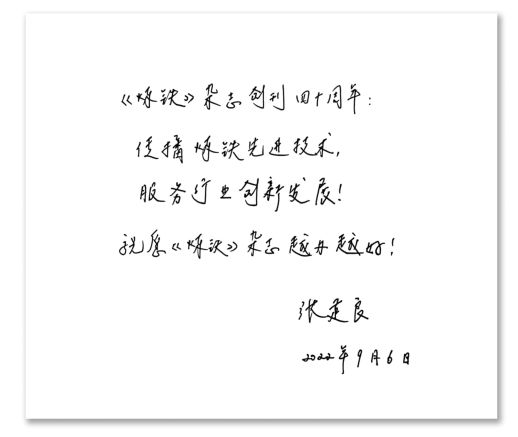 《炼铁》杂志创刊四十周年:
传播炼铁先进技术,
服务行业创新发展!
祝愿《炼铁》杂志越办越好!
张建良
2022年9月6日